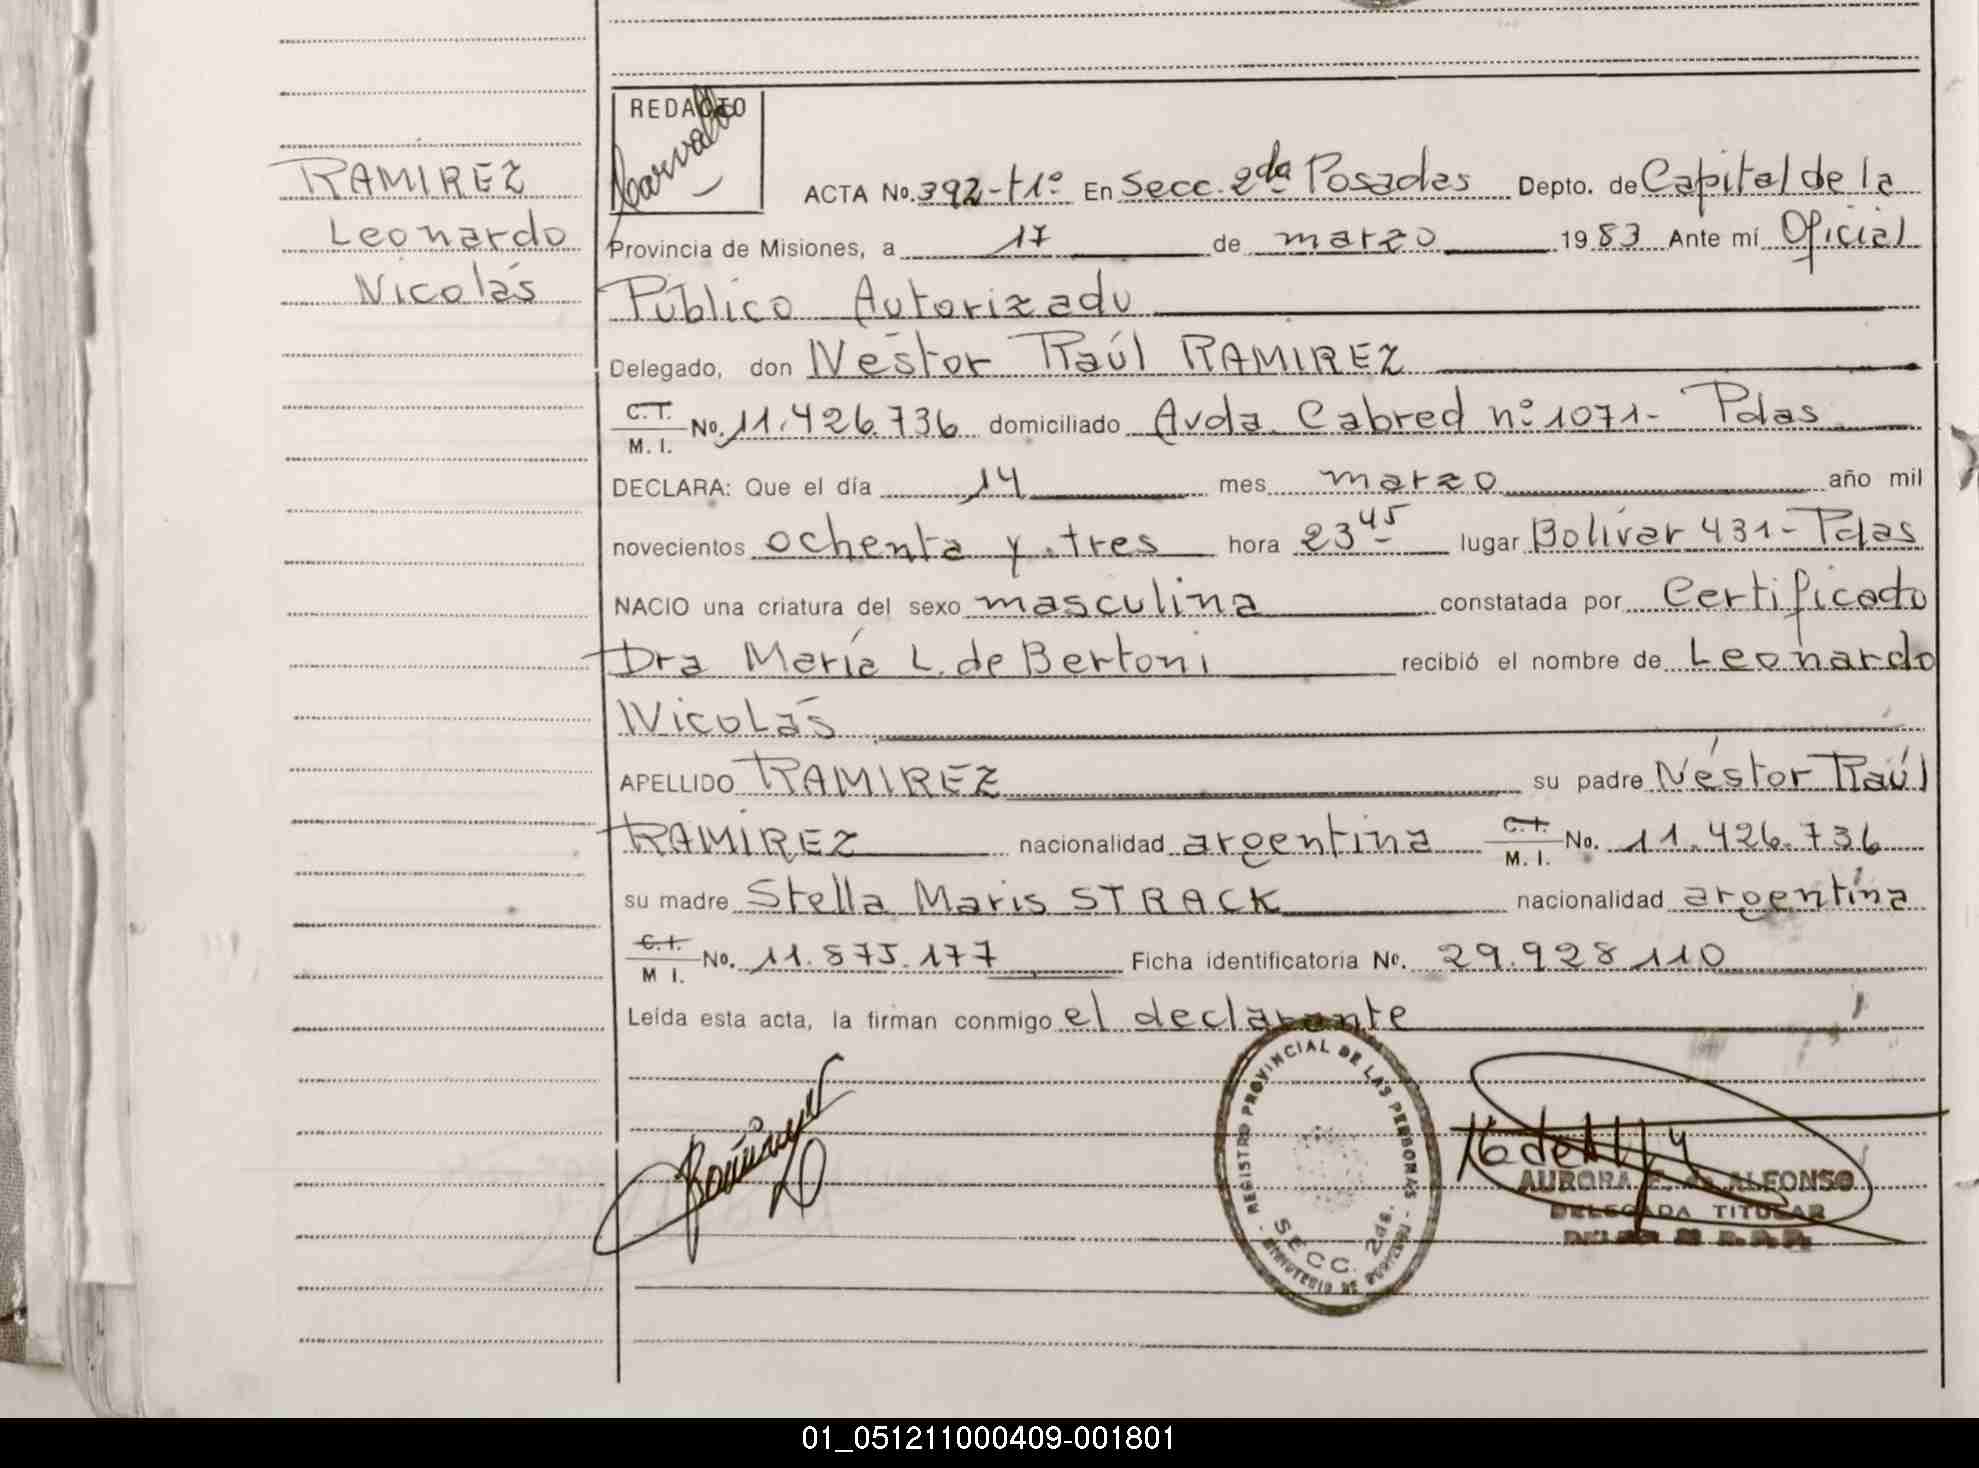 REDACTO
Carvallo
RAMIREZ
Leonardo
Nicolás
ACTA No. 392-t1º En Secc. 2da Posadas Depto. de Capital de la
Provincia de Misiones, a 17 de marzo 1983 Ante mí Oficial
Público Autorizado
Delegado, don Néstor Raúl RAMIREZ
C.T. / M. I. No. 11.426.736 domiciliado Avda Cabred nº 1071- Pdas
DECLARA: Que el día 14 mes marzo año mil
novecientos ochenta y tres hora 23 45 lugar Bolívar 431- Pdas
NACIO una criatura del sexo masculina constatada por Certificado
Dra María L. de Bertoni recibió el nombre de Leonardo
Nicolás
APELLIDO RAMIREZ su padre Néstor Raúl
RAMIREZ nacionalidad argentina C.I. / M. I. No. 11.426.736
su madre Stella Maris STRACK nacionalidad argentina
C.I. / M I. No. 11.875.177 Ficha identificatoria No. 29.928.110
Leída esta acta, la firman conmigo el declarante
REGISTRO PROVINCIAL DE LAS PERSONAS
SECC. 2da.
MINISTERIO DE
AURORA ALFONSO
DELEGADA TITULAR
01_051211000409-001801